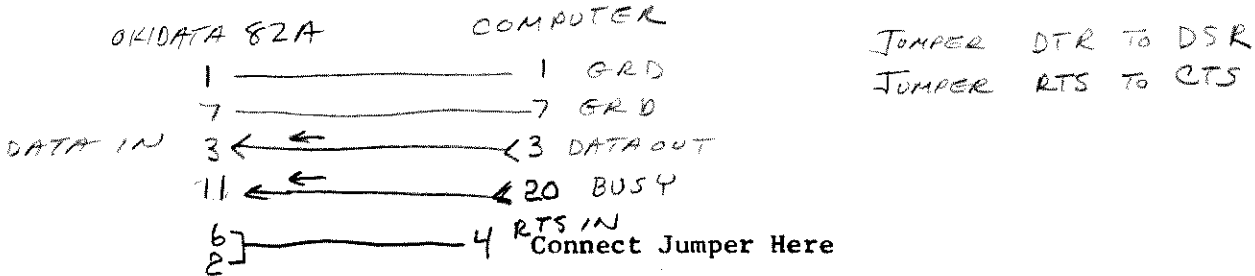 OKIDATA 82A COMPUTER
JUMPER DTR TO DSR
JUMPER RTS TO CTS
1 1 GRD
7 7 GRD
DATA IN 3 3 DATA OUT
11 20 BUSY
6 4 RTS IN
2 Connect Jumper Here